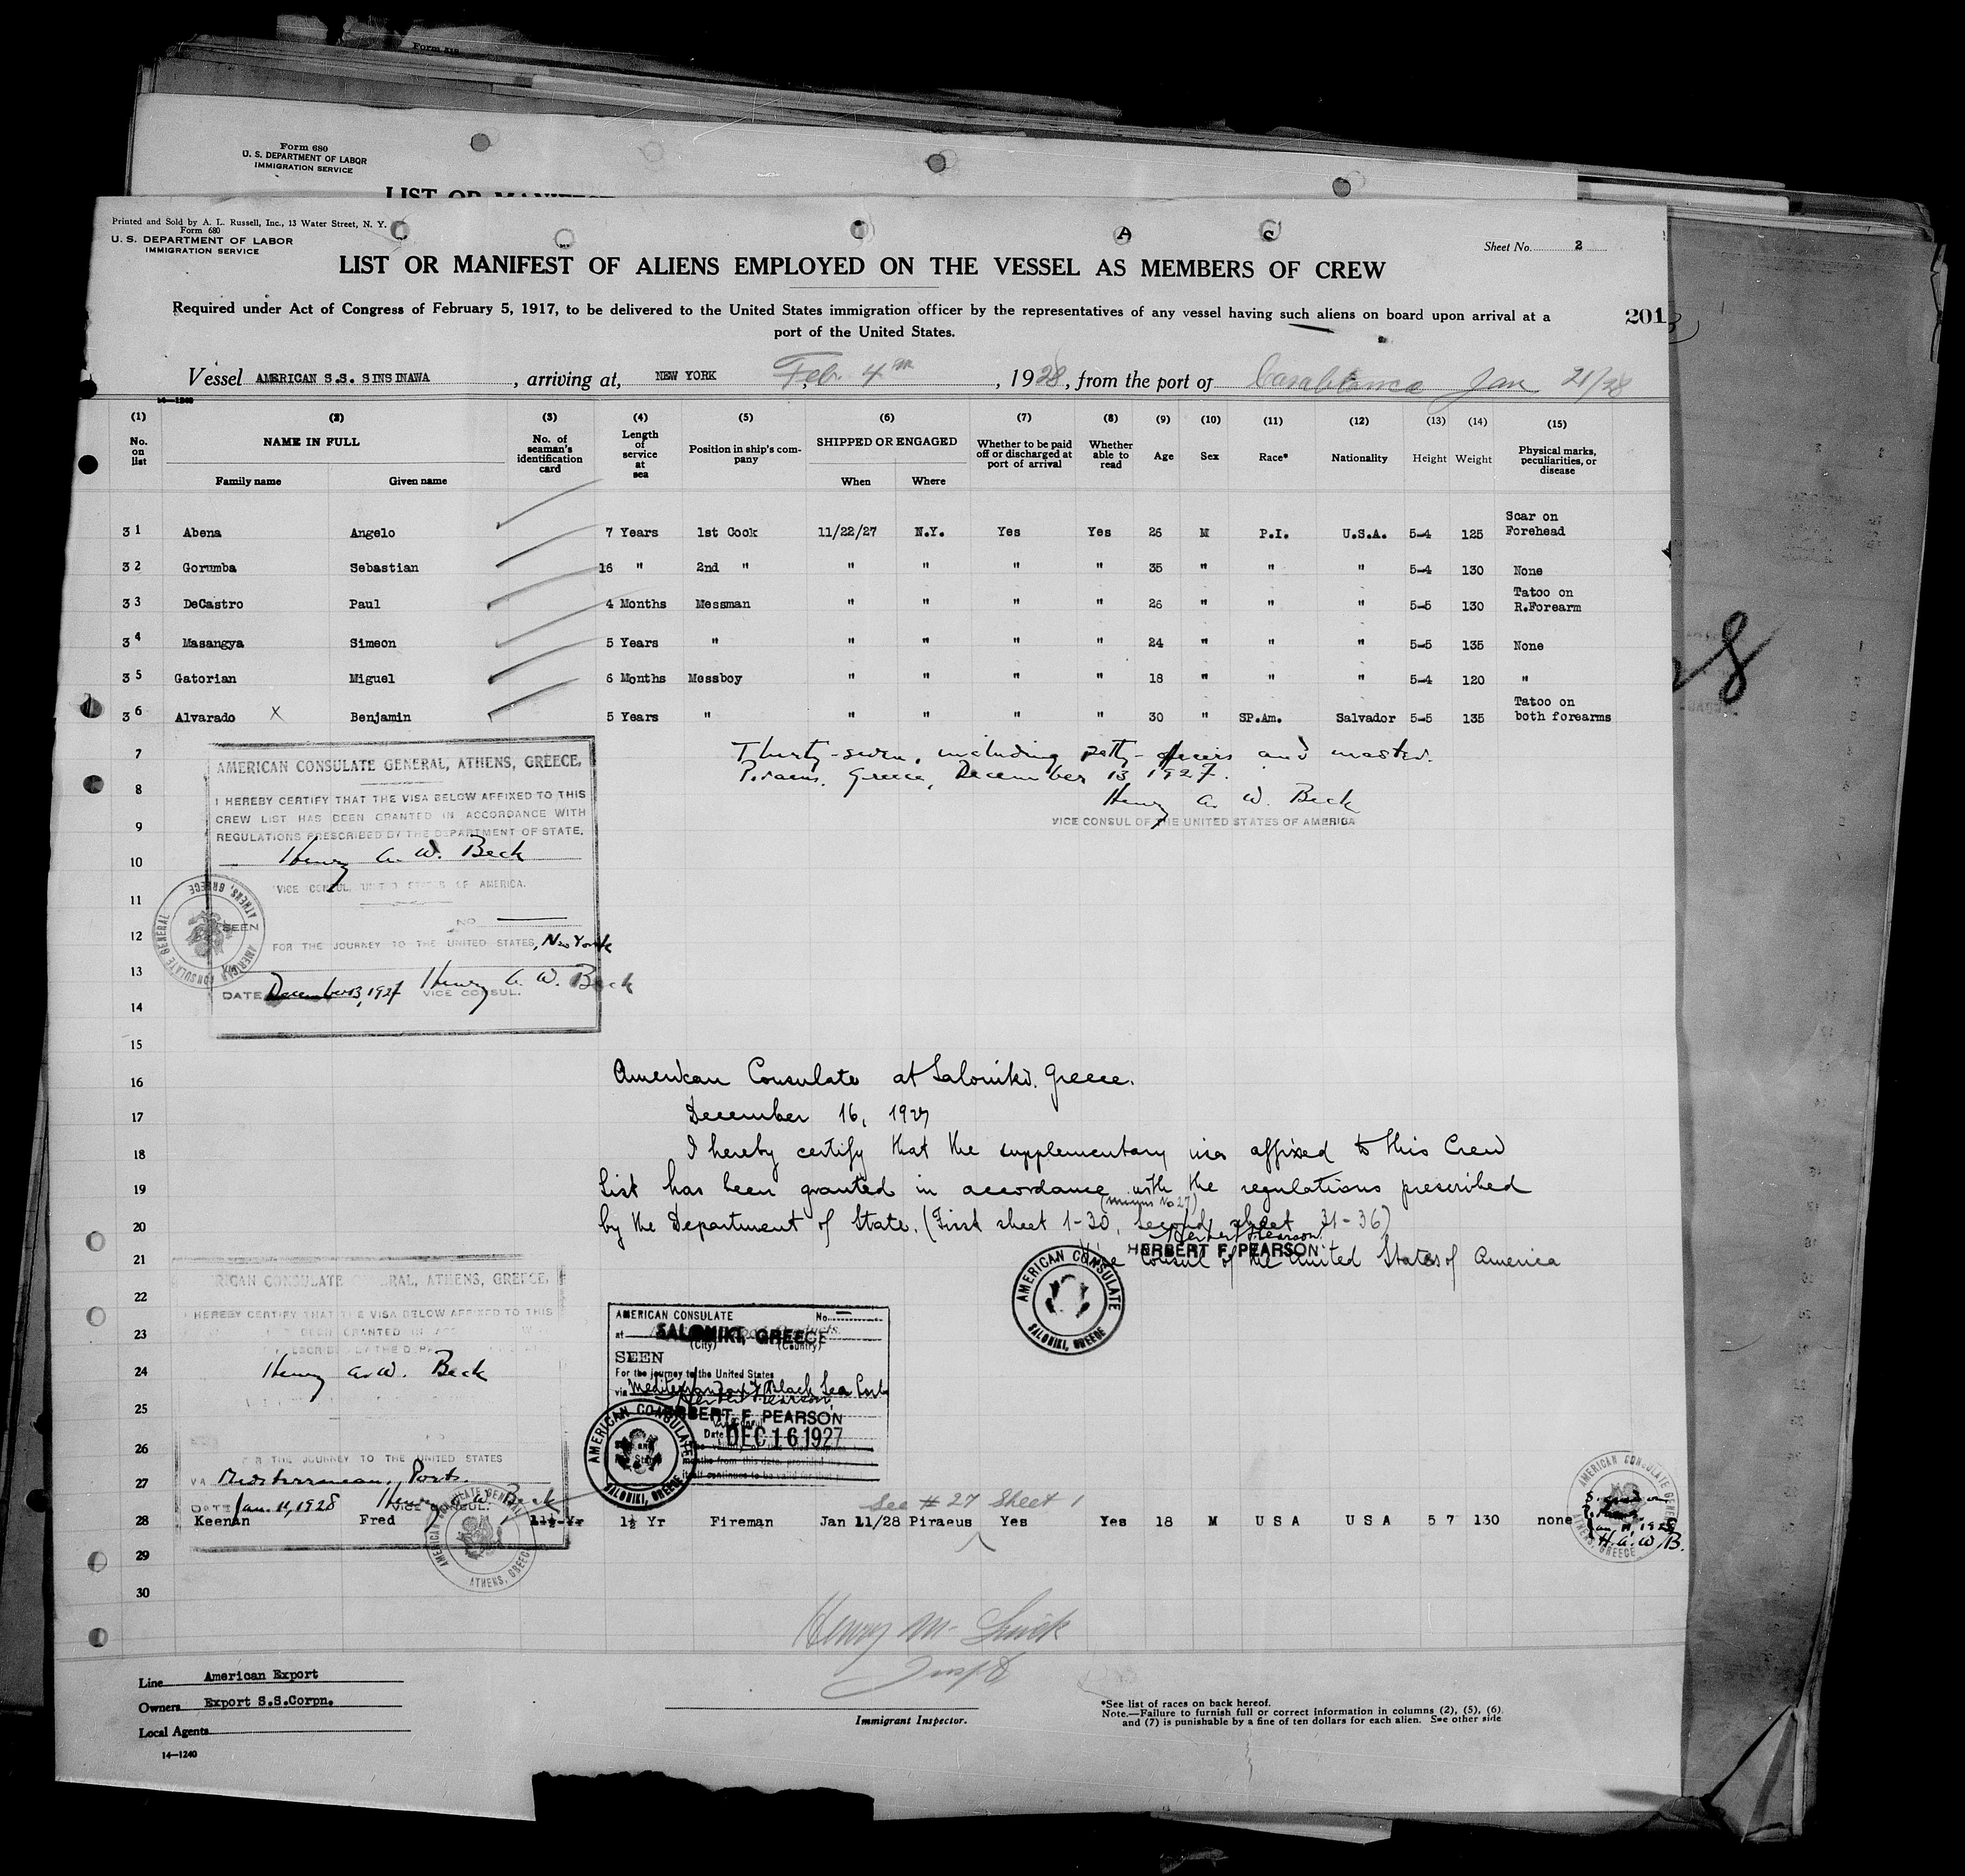 Form 680
U. S. DEPARTMENT OF LABOR
IMMIGRATION SERVICE
LIST OR MANIFEST
Printed and Sold by A. L. Russell, Inc., 13 Water Street, N. Y.
Form 680
U. S. DEPARTMENT OF LABOR
IMMIGRATION SERVICE
A S
Sheet No. 2
LIST OR MANIFEST OF ALIENS EMPLOYED ON THE VESSEL AS MEMBERS OF CREW
Required under Act of Congress of February 5, 1917, to be delivered to the United States immigration officer by the representatives of any vessel having such aliens on board upon arrival at a
port of the United States.
201
Vessel AMERICAN S.S. SINSINAWA, arriving at, NEW YORK Feb. 4th, 1928, from the port of Casablanca Jan 21/28
14—1240
(1) (2) (3) (4) (5) (6) (7) (8) (9) (10) (11) (12) (13) (14) (15)
No. on list
NAME IN FULL
Family name Given name
No. of seaman's identification card
Length of service at sea
Position in ship's company
SHIPPED OR ENGAGED
When Where
Whether to be paid off or discharged at port of arrival
Whether able to read
Age Sex Race* Nationality Height Weight
Physical marks, peculiarities, or disease
31 Abena Angelo 7 Years 1st Cook 11/22/27 N.Y. Yes Yes 26 M P.I. U.S.A. 5-4 125 Scar on Forehead
32 Gorumba Sebastian 16 " 2nd " " " " " 35 " " " 5-4 130 None
33 DeCastro Paul 4 Months Messman " " " " 26 " " " 5-5 130 Tatoo on R.Forearm
34 Masangya Simeon 5 Years " " " " " 24 " " " 5-5 135 None
35 Gatorian Miguel 6 Months Messboy " " " " 18 " " " 5-4 120 "
36 Alvarado X Benjamin 5 Years " " " " " 30 " SP.Am. Salvador 5-5 135 Tatoo on both forearms
7
8
9
10
11
12
13
14
15
16
17
18
19
20
21
22
23
24
25
26
27
Thirty-seven, including petty-officers and master.
Piraeus, Greece, December 13, 1927.
Henry A. W. Beck
VICE CONSUL OF THE UNITED STATES OF AMERICA
AMERICAN CONSULATE GENERAL, ATHENS, GREECE.
I HEREBY CERTIFY THAT THE VISA BELOW AFFIXED TO THIS
CREW LIST HAS BEEN GRANTED IN ACCORDANCE WITH
REGULATIONS PRESCRIBED BY THE DEPARTMENT OF STATE.
Henry A. W. Beck
VICE CONSUL, UNITED STATES OF AMERICA.
NO
SEEN
FOR THE JOURNEY TO THE UNITED STATES, New York
DATE December 13, 1927 Henry A. W. Beck
VICE CONSUL.
AMERICAN CONSULATE GENERAL ATHENS, GREECE
American Consulate at Saloniki. Greece.
December 16, 1927
I hereby certify that the supplementary visa affixed to this Crew
List has been granted in accordance with the regulations prescribed
(minus No 27)
by the Department of State. (First sheet 1-30, second sheet 31-36)
Herbert F. Pearson
HERBERT F. PEARSON
Vice Consul of the United States of America
AMERICAN CONSULATE SALONIKI, GREECE
AMERICAN CONSULATE No.
at SALONIKI, GREECE
(City) (Country)
SEEN
For the journey to the United States
via Mediterranean & Black Sea Ports
HERBERT F. PEARSON
Date DEC 16 1927
months from this date, provided the
AMERICAN CONSULATE SALONIKI, GREECE
AMERICAN CONSULATE GENERAL, ATHENS, GREECE.
I HEREBY CERTIFY THAT THE VISA BELOW AFFIXED TO THIS
BEEN GRANTED IN
Henry A. W. Beck
FOR THE JOURNEY TO THE UNITED STATES
VIA Mediterranean Ports.
DATE Jan. 11, 1928 Henry A. W. Beck
VICE CONSUL.
AMERICAN CONSULATE GENERAL ATHENS, GREECE
See # 27 Sheet 1
28 Keenan Fred 11½ Yr 1½ Yr Fireman Jan 11/28 Piraeus Yes Yes 18 M U S A U S A 5 7 130 none
AMERICAN CONSULATE GENERAL ATHENS, GREECE
Signed on
Jan. 11, 1928
H.A.W.B.
29
30
Henry M.
Insp
Immigrant Inspector.
Line American Export
Owners Export S.S.Corpn.
Local Agents
14—1240
*See list of races on back hereof.
Note.—Failure to furnish full or correct information in columns (2), (5), (6)
and (7) is punishable by a fine of ten dollars for each alien. See other side